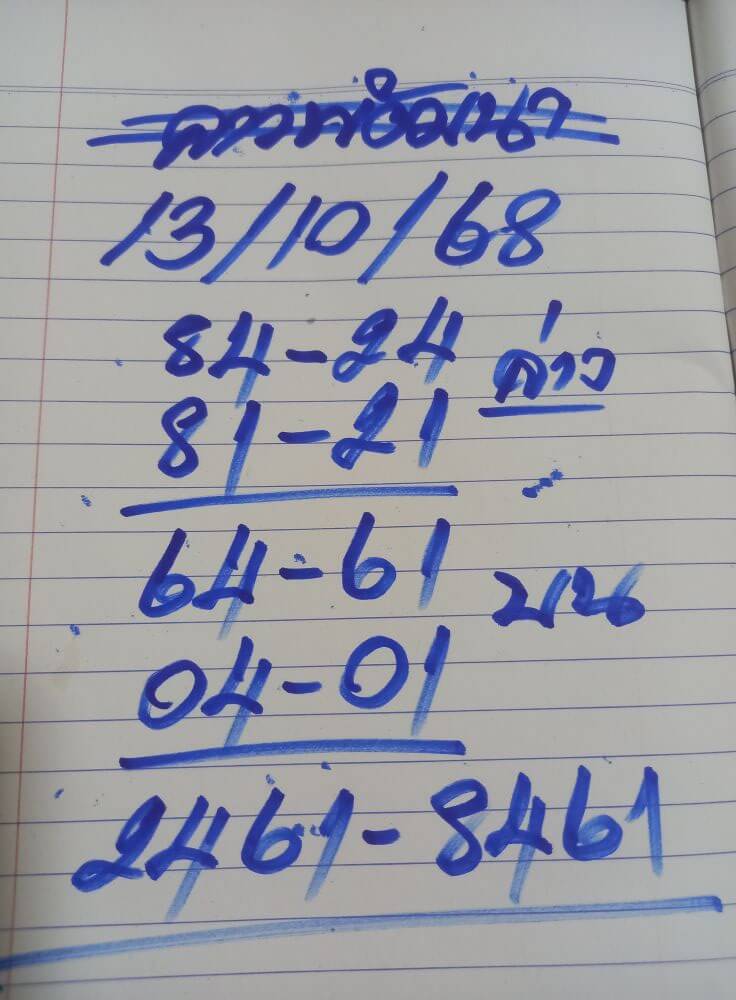 ลาวพัฒนา
13/10/68
84-24 ล่าง
81-21
64-61 บน
04-01
2461-8461